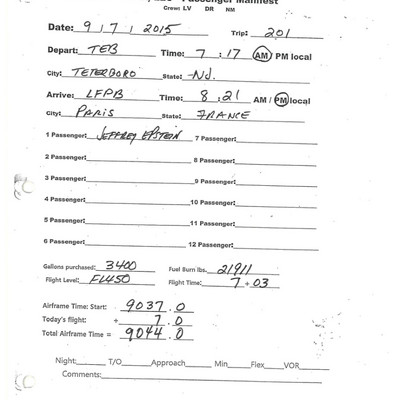 Passenger Manifest
Crew: LV DR NM
Date: 9 / 7 / 2015 Trip: 201
Depart: TEB Time: 7 : 17 AM / PM local
City: TETERBORO State: NJ.
Arrive: LFPB Time: 8 : 21 AM / PM local
City: PARIS State: FRANCE
1 Passenger: JEFFREY EPSTEIN 7 Passenger:
2 Passenger: 8 Passenger:
3 Passenger: 9 Passenger:
4 Passenger: 10 Passenger:
5 Passenger: 11 Passenger:
6 Passenger: 12 Passenger:
Gallons purchased: 3400 Fuel Burn lbs. 21911
Flight Level: FL450 Flight Time: 7 + 03
Airframe Time: Start: 9037.0
Today's flight: + 7.0
Total Airframe Time = 9044.0
Night: T/O Approach Min Flex VOR
Comments: